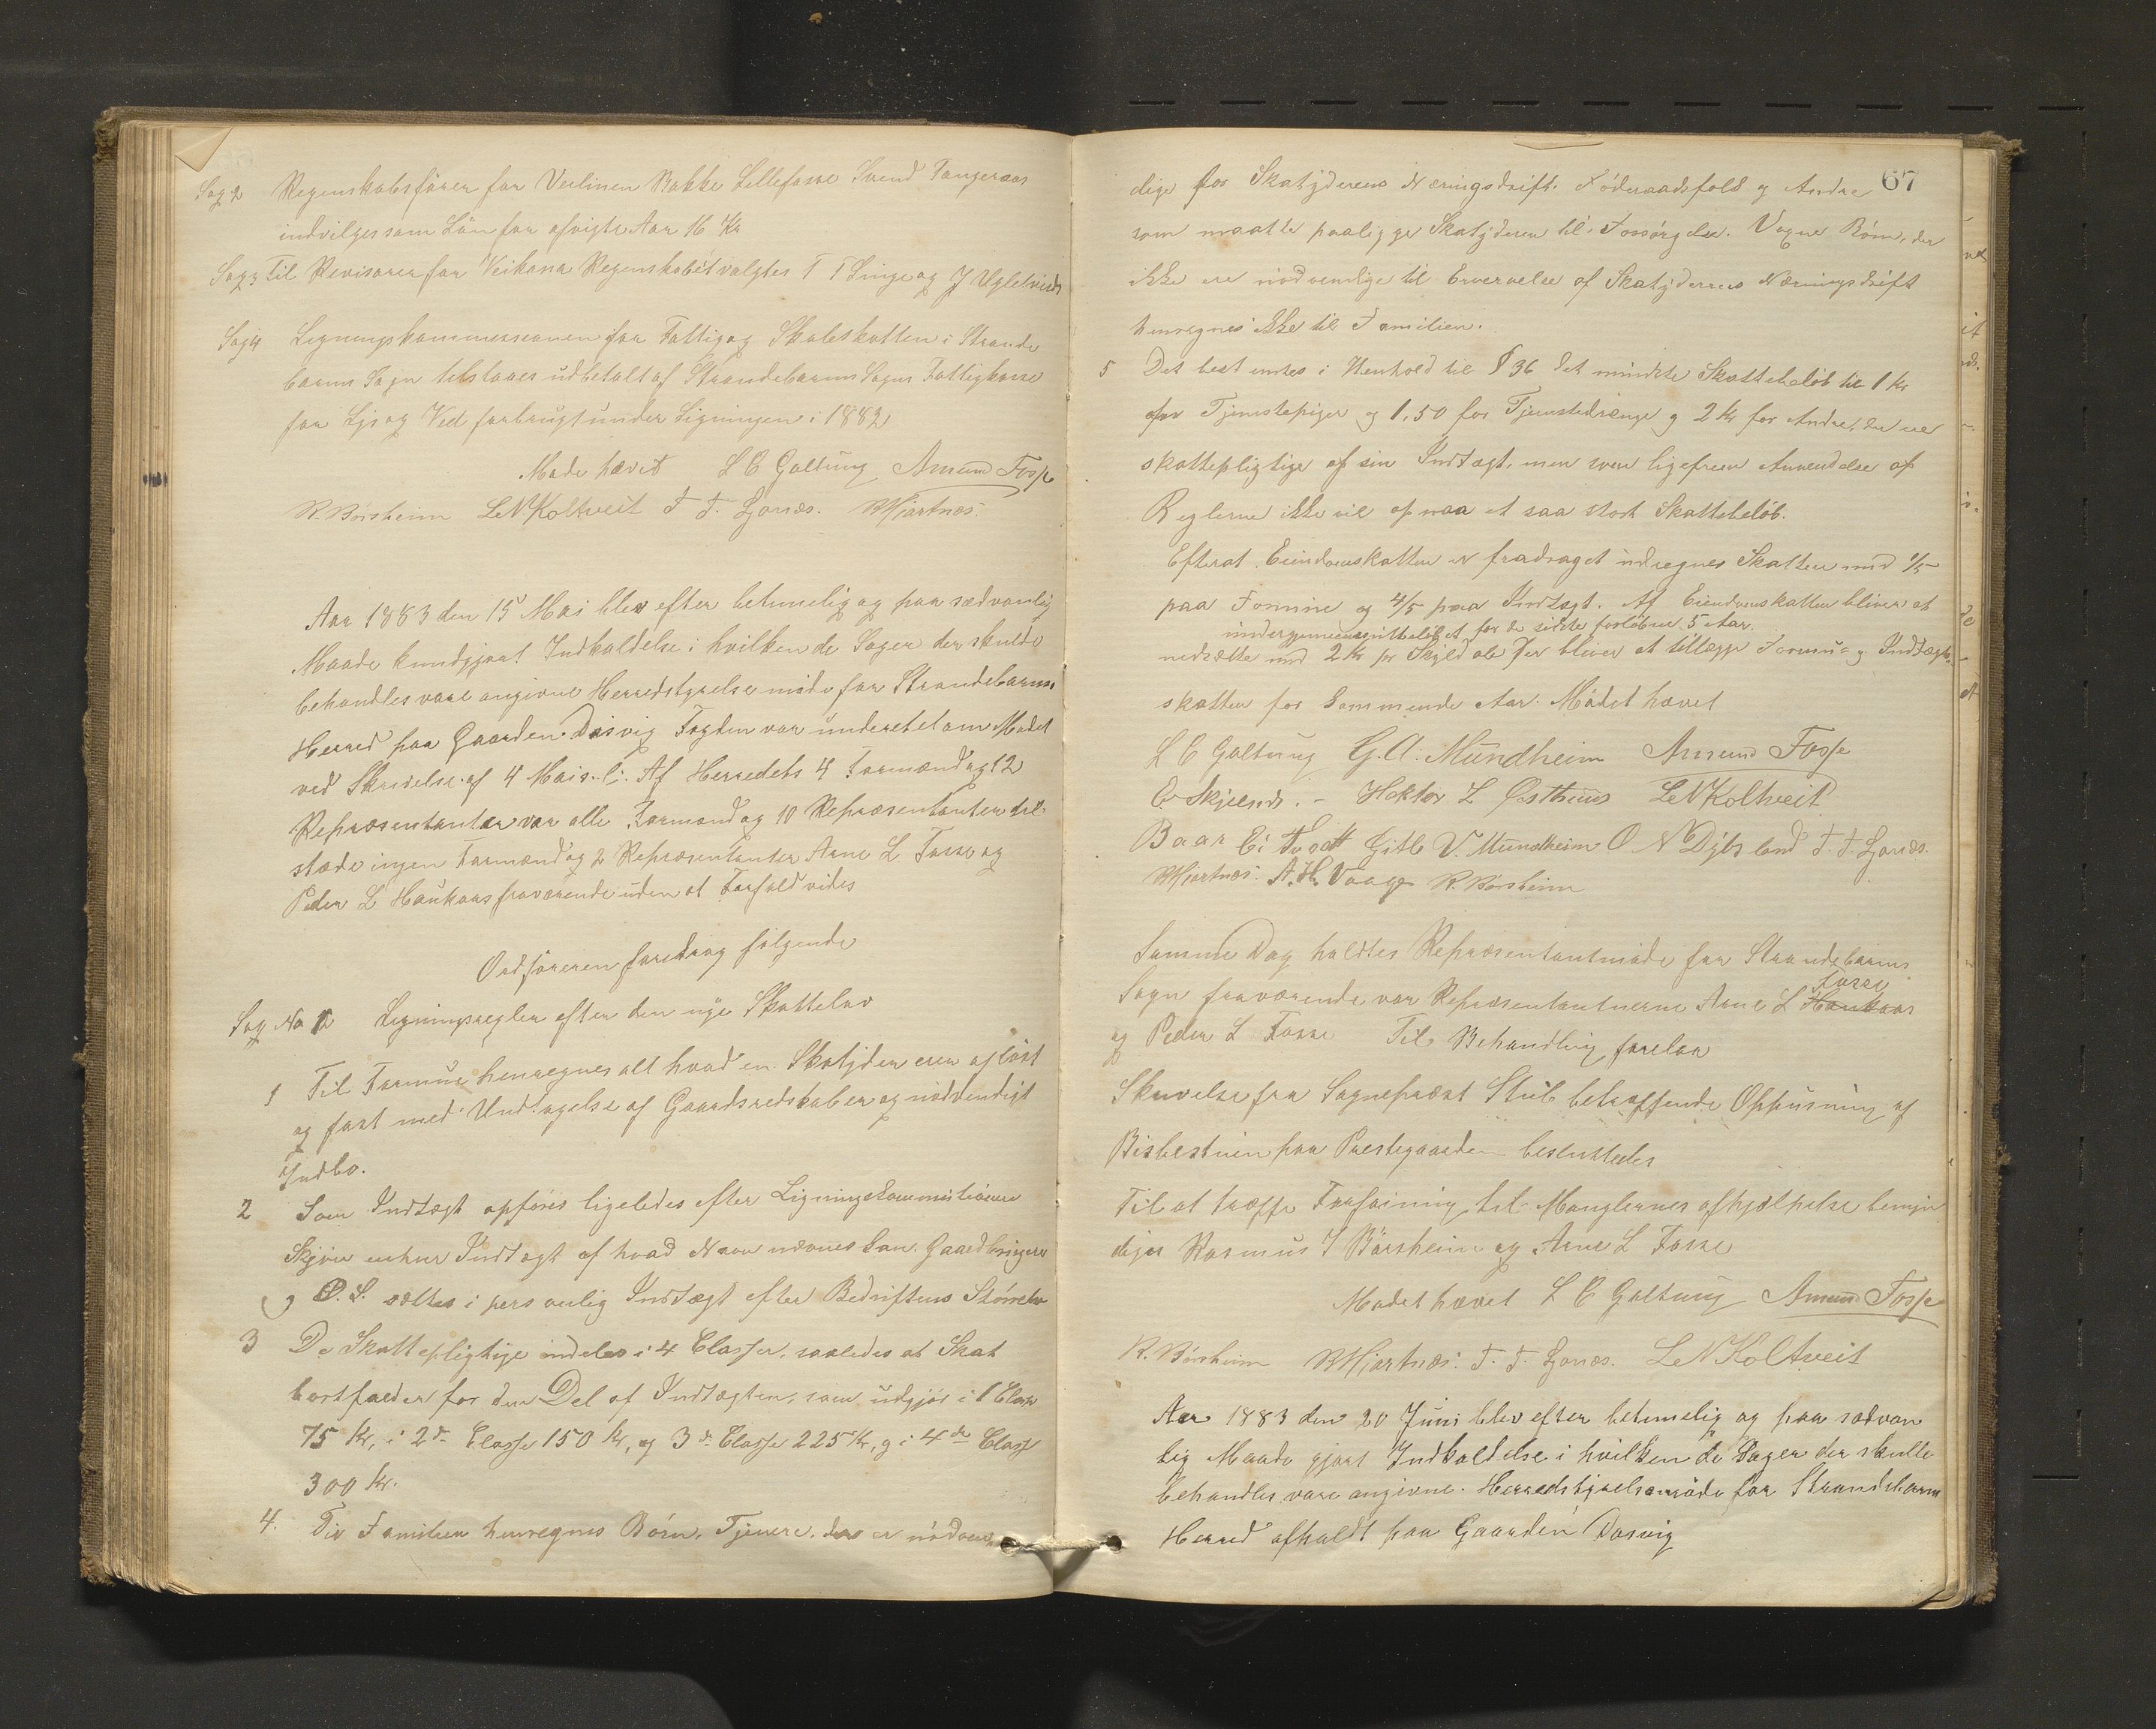 Sag 2 Regenskabsfören for Veilinen Bakke Lillefosse Svend Tangeraas
indvilges som Lön for afvigte Aar 16 Kr
Sag 3 Til Revisorer for Veikasse Regenskabet valgtes T T Linge og J Ugletveidt
Sag 4 Ligningskommissionen for Fattig og Skoleskatten i Strande
barms Sogn tilstaaes udbetalt af Strandebarms Sogns Fattigkasse
for Lys og Ved forbrugt under Ligningen i 1882
Mødet hævet L C Galtung Amund Fosse
R. Börsheim L N Koltveit T. T. Ljonæs. R Hjartnæs.
Aar 1883 den 15 Mai blev efter betimelig og paa sædvanlig
Maade kundgjort Indkaldelse i hvilken de Sager der skulde
behandles vare angivne Herredstyrelsemöde for Strandebarms
Herred paa Gaarden Dasvig Fogden var underettet om Mødet
ved Skrivelse af 4 Mai s. l. Af Herredets 4 Formænd og 12
Repræsentanter var alle Formænd og 10 Repræsentanter til
stæde ingen Formænd og 2 Repræsentanter Arne L Fosse og
Peder L Haukaas fraværende uden at Forfald vides
Ordföreren foredrog fölgende
Sag No 1 Ligningsregler efter den nye Skattelov
1 Til Formue henregnes alt hvad en Skatyder eier af löst
og fast med Undtagelse af Gaardsredskaber og nödvendigt
Indbo.
2 Som Indtægt opføres ligeledes efter Ligningskommissionens
Skjön enhver Indtægt af hvad Navn nævnes kan. Gaardbrugere
og O. S. sættes i personlig Indtægt efter Bedriftens Størrelse
3 De Skattepligtige inddeles i 4 Classer, saaledes at Skat
bortfalder for den Del af Indtægten, som udgjør i 1 Classe
75 Kr, i 2den Classe 150 Kr, og 3de Classe 225 Kr, og i 4de Classe
300 Kr.
4. Til Familien henregnes Börn, Tjenere, der er nødven
67
dige for Skatyderens Næringsdrift. Föderaadsfolk og Andre
som maatte paaligge Skatyderen til Forsörgelse. Voxne Börn, der
ikke ere nödvendige til Ervervelse af Skatyderens Næringsdrift
henregnes ikke til Familien.
5 Det bestemtes i Henhold til § 36 det mindste Skattebeløb til 1 Kr
for Tjenestepiger og 1,50 for Tjenestedrenge og 2 Kr for Andre, der ere
skattepligtige af sin Indtægt, men hvor ligefrem Anvendelse af
Reglerne ikke vil opnaa et saa stort Skattebeløb.
Efterat Eiendomsskatten er fradraget udregnes Skatten med 1/5
paa Formue og 4/5 paa Indtægt. Af Eiendomsskatten bliver at
undergjennemsnittbeløbet for de sidste forløbne 5 Aar.
nedsætte med 2 Kr pr Skylddaler der bliver at tillægge Formue og Indtægts
skatten for kommende Aar. Mödet hævet
L C Galtung G. A. Mundheim Amund Fosse
O Skjelnds. Haktor L Østhuus L N Koltveit
Baar Ei Tvedt Gitle V. Mundheim O N Dybsland T. T. Ljonæs.
R Hjartnæs. A. H. Vaage R. Börsheim
Samme Dag holdtes Repræsentantmöde for Strandebarms
Fosse
Sogn fraværende var Repræsentanterne Arne L Haukaas
og Peder L Fosse Til Behandling forelaa
Skrivelse fra Sogneprest Stub betræffende Oppusning af
Bispestuen paa Prestegaarden besluttedes
Til at træffe Forføining til Manglernes afhjælpelse bemyn
diges Rasmus J Börsheim og Arne L Fosse
Mødet hævet L C Galtung Amund Fosse
R. Börsheim R Hjartnæs. T. T. Ljonæs. L N Koltveit
Aar 1883 den 20 Juni blev efter betimelig og paa sædvan
lig Maade gjort Indkaldelse i hvilken de Sager der skulle
behandles vare angivne. Herredstyrelsemöde for Strandebarm
Herred afholdt paa Gaarden Dasvig